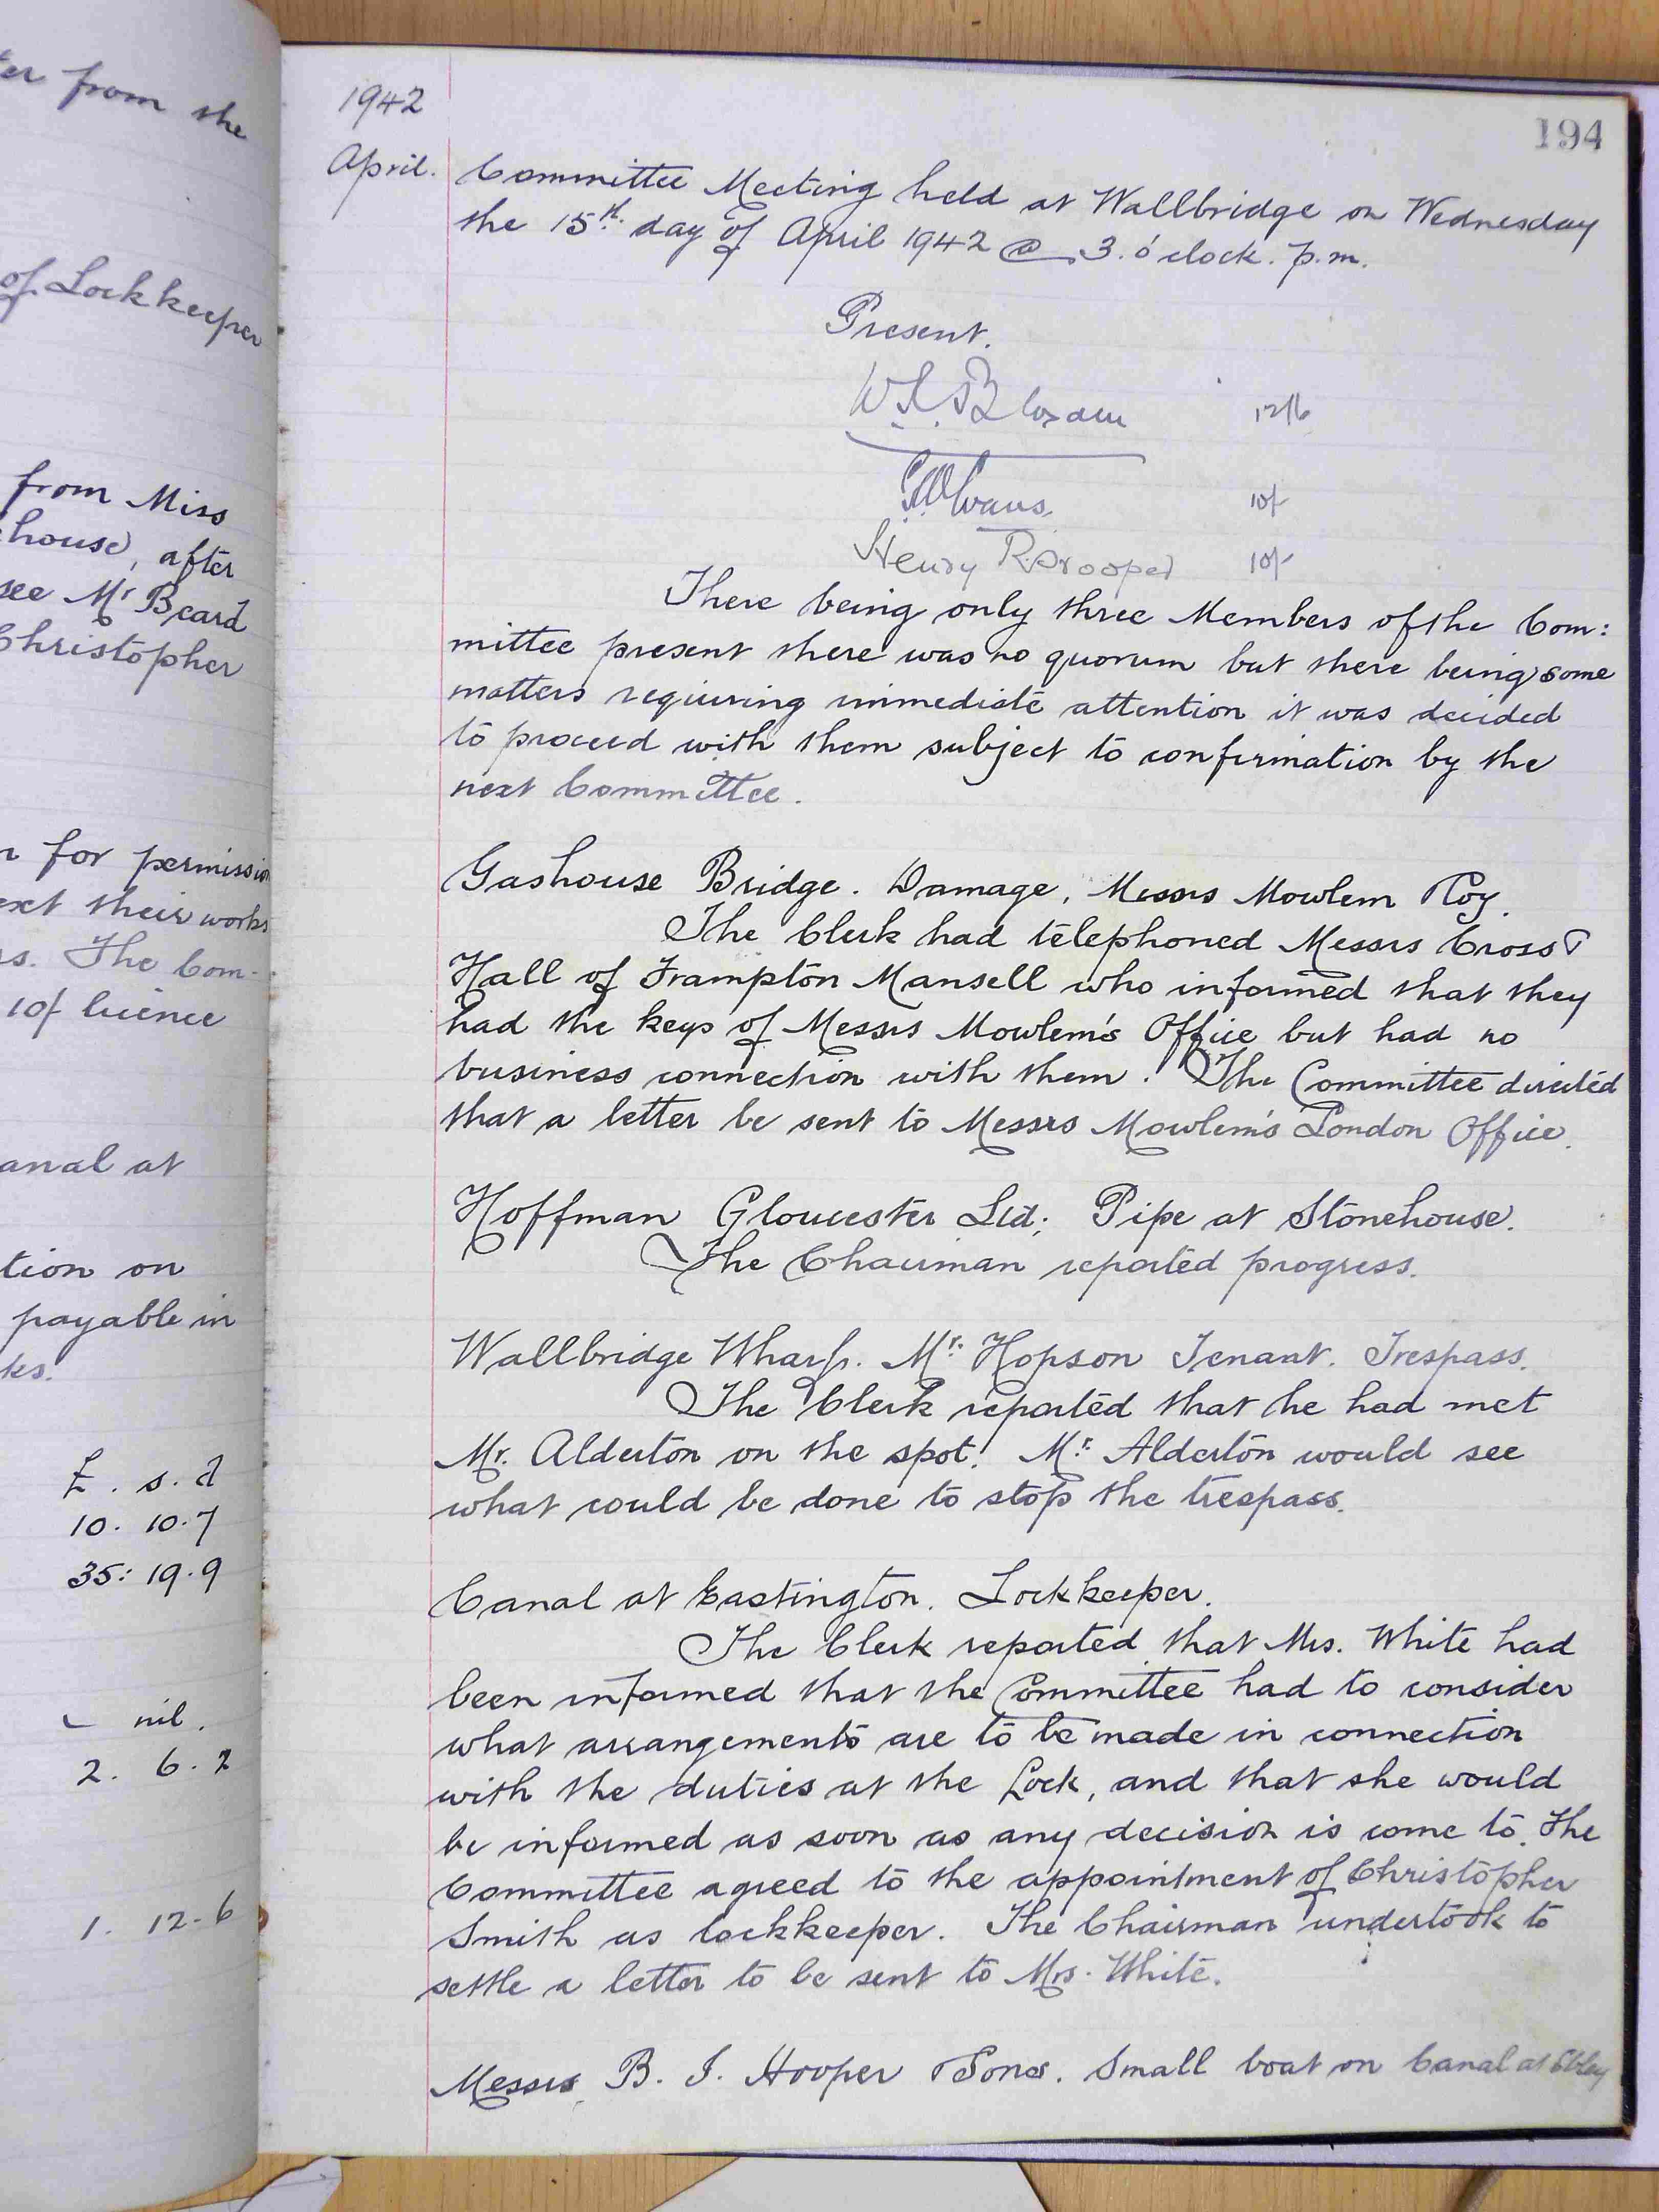 ter from the
of Lockkeeper
from Miss
house, after
see Mr Beard
Christopher
for permission
their works
rs. The Com-
10/ licence
anal at
tion on
payable in
ks.
£ . s. d
10. 10. 7
35: 19. 9
nil.
2. 6. 2
1. 12-6
194
1942
April.
Committee Meeting held at Wallbridge on Wednesday
the 15th. day of April 1942 @ 3. o'clock. p.m.
Present.
12/6
Evans. 10/-
Henry 10/-
There being only three Members of the Com:
mittee present there was no quorum but there being some
matters requiring immediate attention it was decided
to proceed with them subject to confirmation by the
next Committee.
Gashouse Bridge. Damage, Messrs Mowlem & Coy.
The Clerk had telephoned Messrs Cross &
Hall of Frampton Mansell who informed that they
had the keys of Messrs Mowlem's Office but had no
business connection with them. The Committee directed
that a letter be sent to Messrs Mowlem's London Office.
Hoffman Gloucester Ltd; Pipe at Stonehouse.
The Chairman reported progress.
Wallbridge Wharf. Mr. Hopson Tenant. Trespass.
The Clerk reported that he had met
Mr. Alderton on the spot. Mr. Alderton would see
what could be done to stop the trespass.
Canal at Eastington. Lockkeeper.
The Clerk reported that Mrs. White had
been informed that the Committee had to consider
what arrangements are to be made in connection
with the duties at the Lock, and that she would
be informed as soon as any decision is come to. The
Committee agreed to the appointment of Christopher
Smith as lockkeeper. The Chairman undertook to
settle a letter to be sent to Mrs. White.
Messrs B. I. Hooper & Sons. Small boat on Canal at Ebley